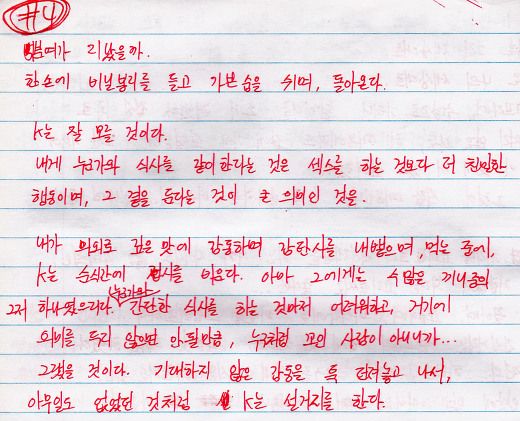 #4
몇여가 지났을까.
한손에 비닐봉지를 들고 가쁜 숨을 쉬며, 돌아온다.
K는 잘 모를 것이다.
내게 누군가와 식사를 같이한다는 것은 섹스를 하는 것보다 더 친밀한
행동이며, 그 곁을 둔다는 것이 큰 의미인 것을.
내가 의외로 깊은 맛에 감동하며 감탄사를 내뱉으며, 먹는 중에,
K는 순식간에 식사를 마친다. 아마 그에게는 수많은 끼니중의
그저 하나였으리라. 누군가와 간단한 식사를 하는 것마저 어려워하고, 거기에
의미를 두지 않으면 안될만큼, 누구처럼 꼬인 사람이 아니니까...
그랬을 것이다. 기대하지 않은 감동을 툭 던져놓고 나서,
아무일도 없었던 것처럼 K는 설거지를 한다.